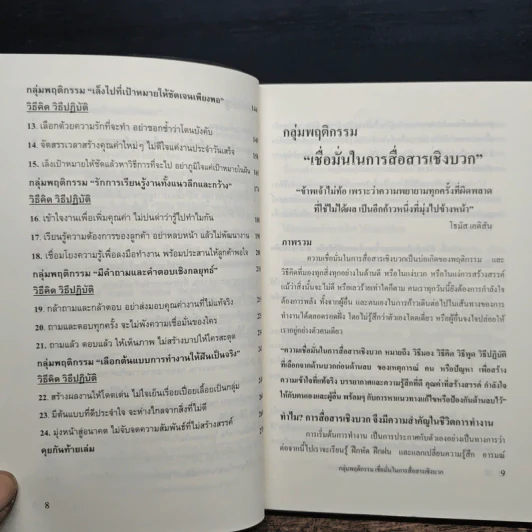 กลุ่มพฤติกรรม “เล็งไปที่เป้าหมายให้ชัดเจนเพียงพอ”
วิธีคิด วิธีปฏิบัติ
13. เลือกด้วยความรักที่จะทำ อย่าชอกช้ำว่าโดนบังคับ
14. จัดสรรเวลาสร้างคุณค่าใหม่ๆ ไม่ดีใจแค่งานประจำวันเสร็จ
15. เล็งเป้าหมายให้ชัดแล้วหาวิธีการที่จะไป อย่าภูมิใจแค่เป้าหมายในฝัน
กลุ่มพฤติกรรม “รักการเรียนรู้งานทั้งแนวลึกและกว้าง”
วิธีคิด วิธีปฏิบัติ
16. เข้าใจงานเพื่อเพิ่มคุณค่า ไม่บ่นด่าว่ารู้ไปทำไมกัน
17. เรียนรู้ความต้องการของลูกค้า อย่าหลบหน้า แล้วไม่พัฒนางาน
18. เชื่อมโยงความรู้ เพื่อลงมือทำงาน พร้อมประสานให้ลูกค้าพอใจ
กลุ่มพฤติกรรม “มีคำถามและคำตอบเชิงกลยุทธ์”
วิธีคิด วิธีปฏิบัติ
19. กล้าถามและกล้าตอบ อย่างส่งมอบคุณค่างานที่ไม่แท้จริง
20. ถามและตอบทุกครั้ง จะไม่พังความเชื่อมั่นของใคร
21. ถามแล้ว ตอบแล้ว ให้เห็นภาพ ไม่สร้างบาปให้ใครสะดุด
กลุ่มพฤติกรรม “เลือกต้นแบบการทำงานให้ฝันเป็นจริง”
วิธีคิด วิธีปฏิบัติ
22. สร้างผลงานให้โดดเด่น ไม่ใจเย็นเรื่อยเปื่อยเลื้อยเป็นกลุ่ม
23. มีต้นแบบที่ดีประจำใจ จะห่างไกลจากสิ่งที่ไม่ดี
24. มุ่งหน้าสู่อนาคต ไม่จับจดความสัมพันธ์ที่ไม่สร้างสรรค์
คุยกันท้ายเล่ม
8
กลุ่มพฤติกรรม
“เชื่อมั่นในการสื่อสารเชิงบวก”
“ข้าพเจ้าไม่ท้อ เพราะว่าความพยายามทุกครั้งที่ผิดพลาด
ที่ใช้ไม่ได้ผล เป็นอีกก้าวหนึ่งที่มุ่งไปข้างหน้า”
โธมัส เอดิสัน
ภาพรวม
ความเชื่อมั่นในการสื่อสารเชิงบวกเป็นบ่อเกิดของพฤติกรรม และ
วิธีคิดที่มองทุกสิ่งทุกอย่างในด้านดี หรือในแง่บวก หรือในแง่การสร้างสรรค์
แม้ว่าสิ่งนั้นจะไม่ดี หรือเลวร้ายเท่าใดก็ตาม คนเราทุกวันนี้ยังต้องการกำลังใจ
ต้องการพลัง ทั้งจากผู้อื่น และตนเองในการก้าวเดินต่อไปในเส้นทางของการ
ทำงานได้ตลอดรอดฝั่ง โดยไม่รู้สึกว่าตัวเองโดดเดี่ยว หรือผู้อื่นจงใจปล่อยให้
เราอยู่อย่างตัวคนเดียว
“ความเชื่อมั่นในการสื่อสารเชิงบวก หมายถึง วิธีมอง วิธีคิด วิธีพูด วิธีปฏิบัติ
ที่เลือกจากด้านบวกก่อนด้านลบ ของเหตุการณ์ คน หรือปัญหา เพื่อสร้าง
ความเข้าใจที่แท้จริง บรรยากาศและความรู้สึกที่ดี คุณค่าที่สร้างสรรค์ กำลังใจ
ให้กับตนเองและผู้อื่น พร้อมๆ กับการหาแนวทางแก้ไขหรือป้องกันด้านลบไว้”
ทำไม? การสื่อสารเชิงบวก จึงมีความสำคัญในชีวิตการทำงาน
การเริ่มต้นการทำงาน เป็นการประกาศกับตัวเองอย่างเป็นทางการว่า
ต่อจากนี้ไปเราจะเรียนรู้ ฝึกหัด ฝึกฝน และแลกเปลี่ยนความรู้สึก อารมณ์
กลุ่มพฤติกรรม เชื่อมั่นในการสื่อสารเชิงบวก 9